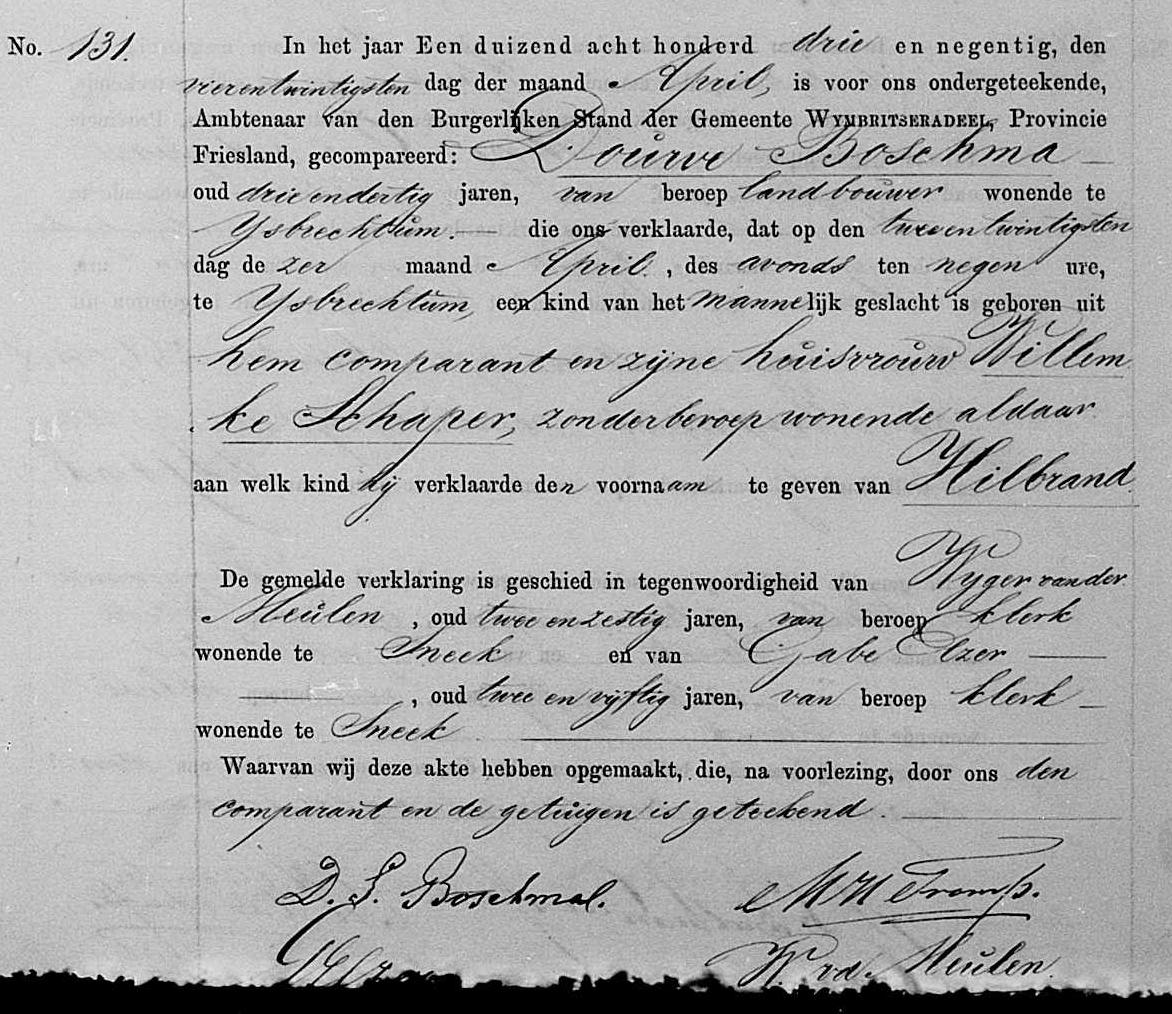 No. 131. In het jaar Een duizend acht honderd drie en negentig, den
vierentwintigsten dag der maand April, is voor ons ondergeteekende,
Ambtenaar van den Burgerlijken Stand der Gemeente WYMBRITSERADEEL, Provincie
Friesland, gecompareerd: Dourve Boschma
oud drie en dertig jaren, van beroep landbouwer wonende te
Ysbrechtum. die ons verklaarde, dat op den twee en twintigsten
dag dezer maand April, des avonds ten negen ure,
te Ysbrechtum, een kind van het mannelijk geslacht is geboren uit
hem comparant en zijne huisvrouw Willem
ke Schaper, zonder beroep wonende aldaar
aan welk kind hij verklaarde den voornaam te geven van Hilbrand
De gemelde verklaring is geschied in tegenwoordigheid van Wyger van der
Meulen, oud twee en zestig jaren, van beroep klerk
wonende te Sneek en van Gabe Elzer
, oud twee en vijftig jaren, van beroep klerk
wonende te Sneek
Waarvan wij deze akte hebben opgemaakt, die, na voorlezing, door ons den
comparant en de getuigen is geteekend.
D. S. Boschma MH Tromp.
W. vd. Meulen